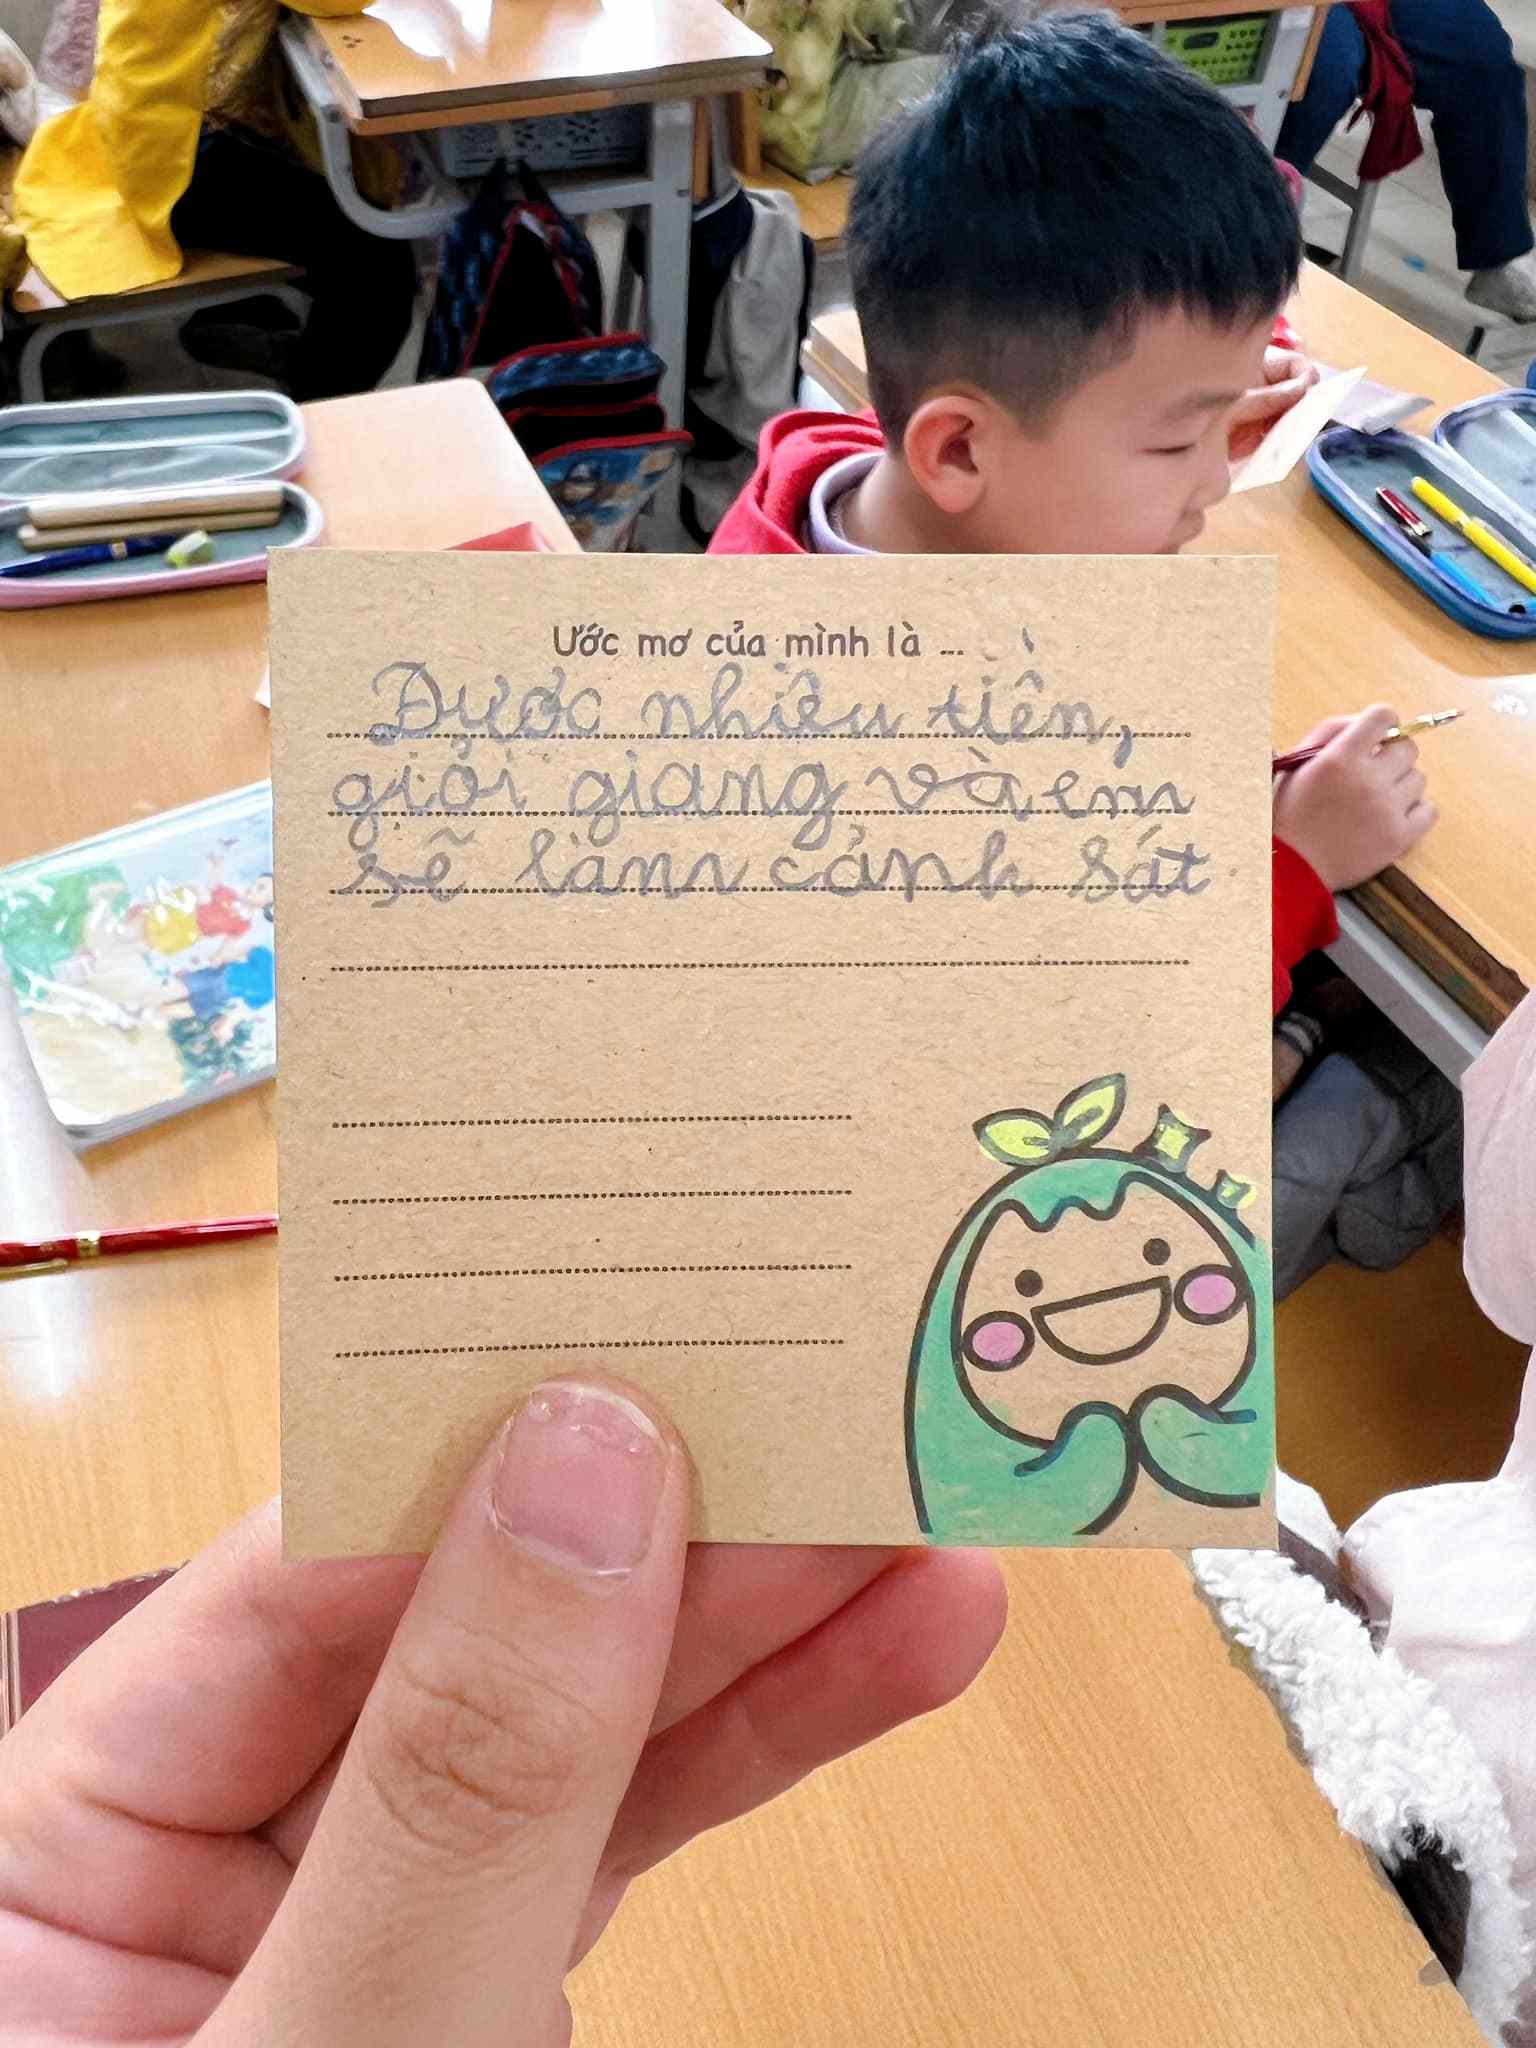 Ước mơ của mình là ...
Được nhiều tiền,
giỏi giang và em
sẽ làm cảnh sát